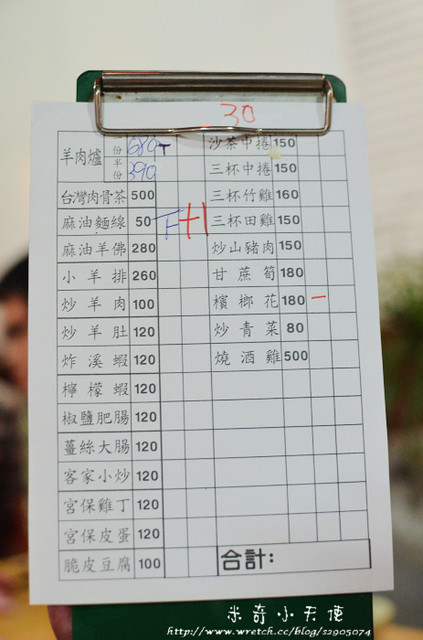 30
羊肉爐 份 680
半份 390
台灣肉骨茶 500
麻油麵線 50
麻油羊佛 280
小羊排 260
炒羊肉 100
炒羊肚 120
炸溪蝦 120
檸檬蝦 120
椒鹽肥腸 120
薑絲大腸 120
客家小炒 120
宮保雞丁 120
宮保皮蛋 120
脆皮豆腐 100
沙茶中捲 150
三杯中捲 150
三杯竹雞 160
三杯田雞 150
炒山豬肉 150
甘蔗筍 180
檳榔花 180 一
炒青菜 80
燒酒雞 500
合計：
米奇小天使
http://www.wretch.cc/blog/22905074